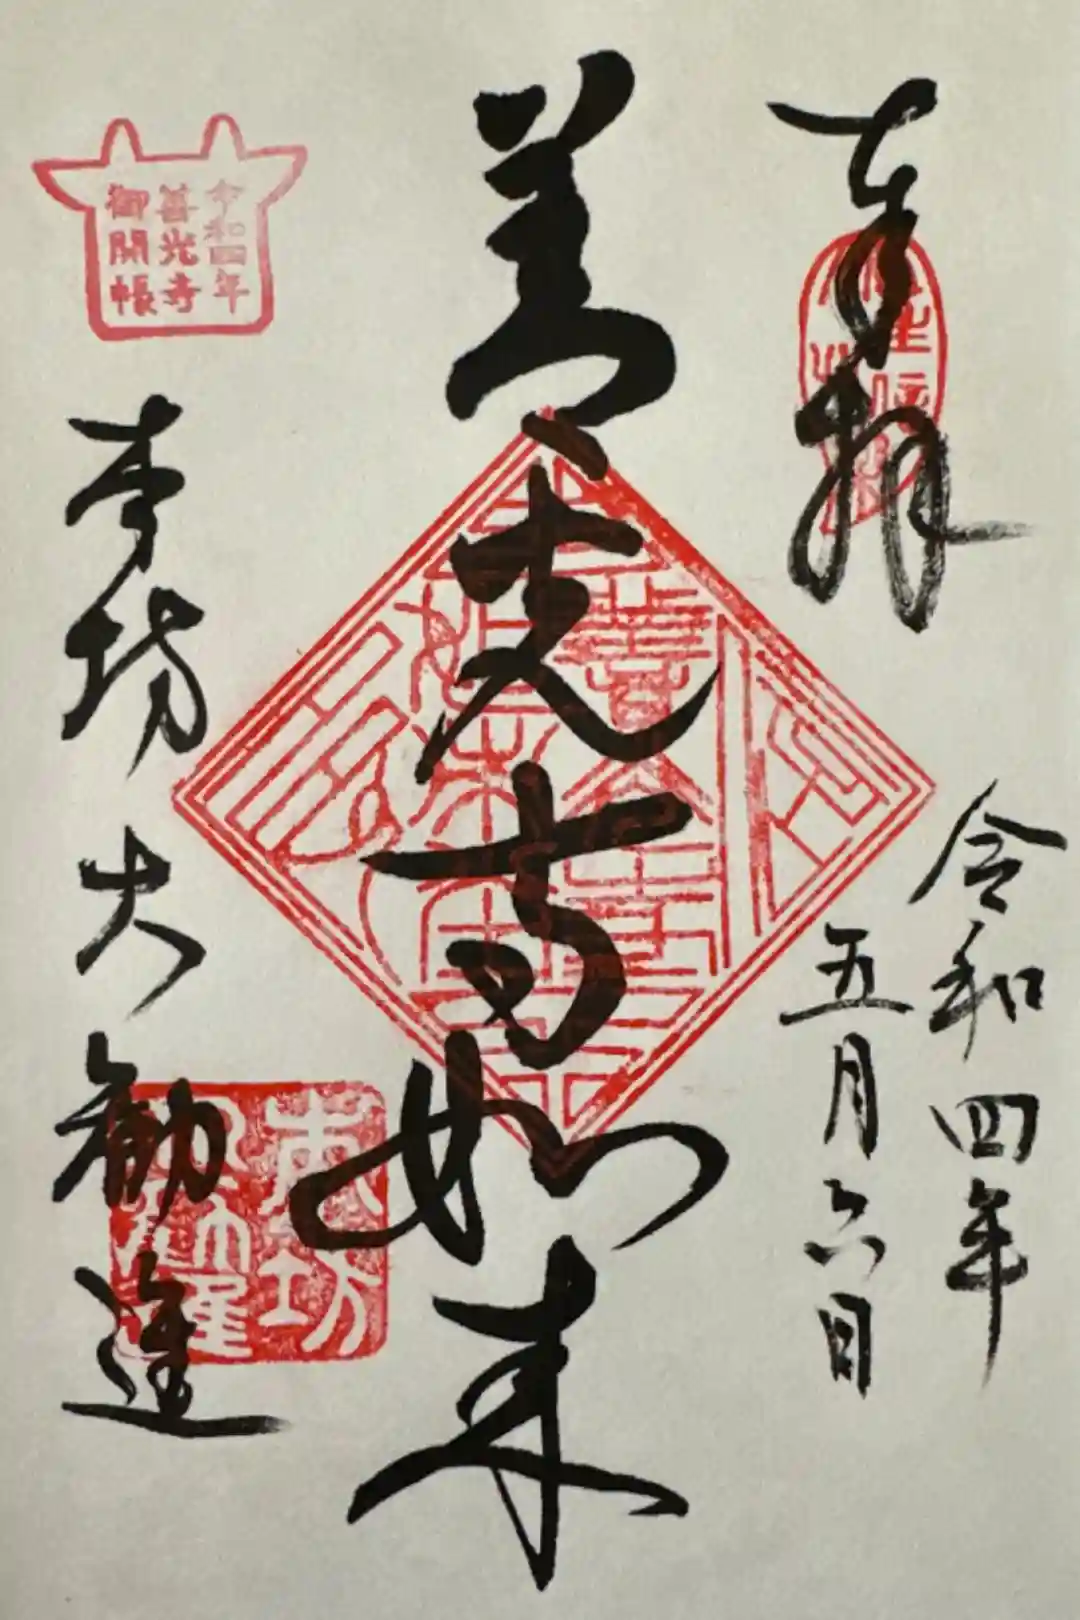 奉拝
令和四年
五月六日
善光寺如来
善光寺
如来
本坊
令和四年
善光寺
御開帳
本坊大勧進